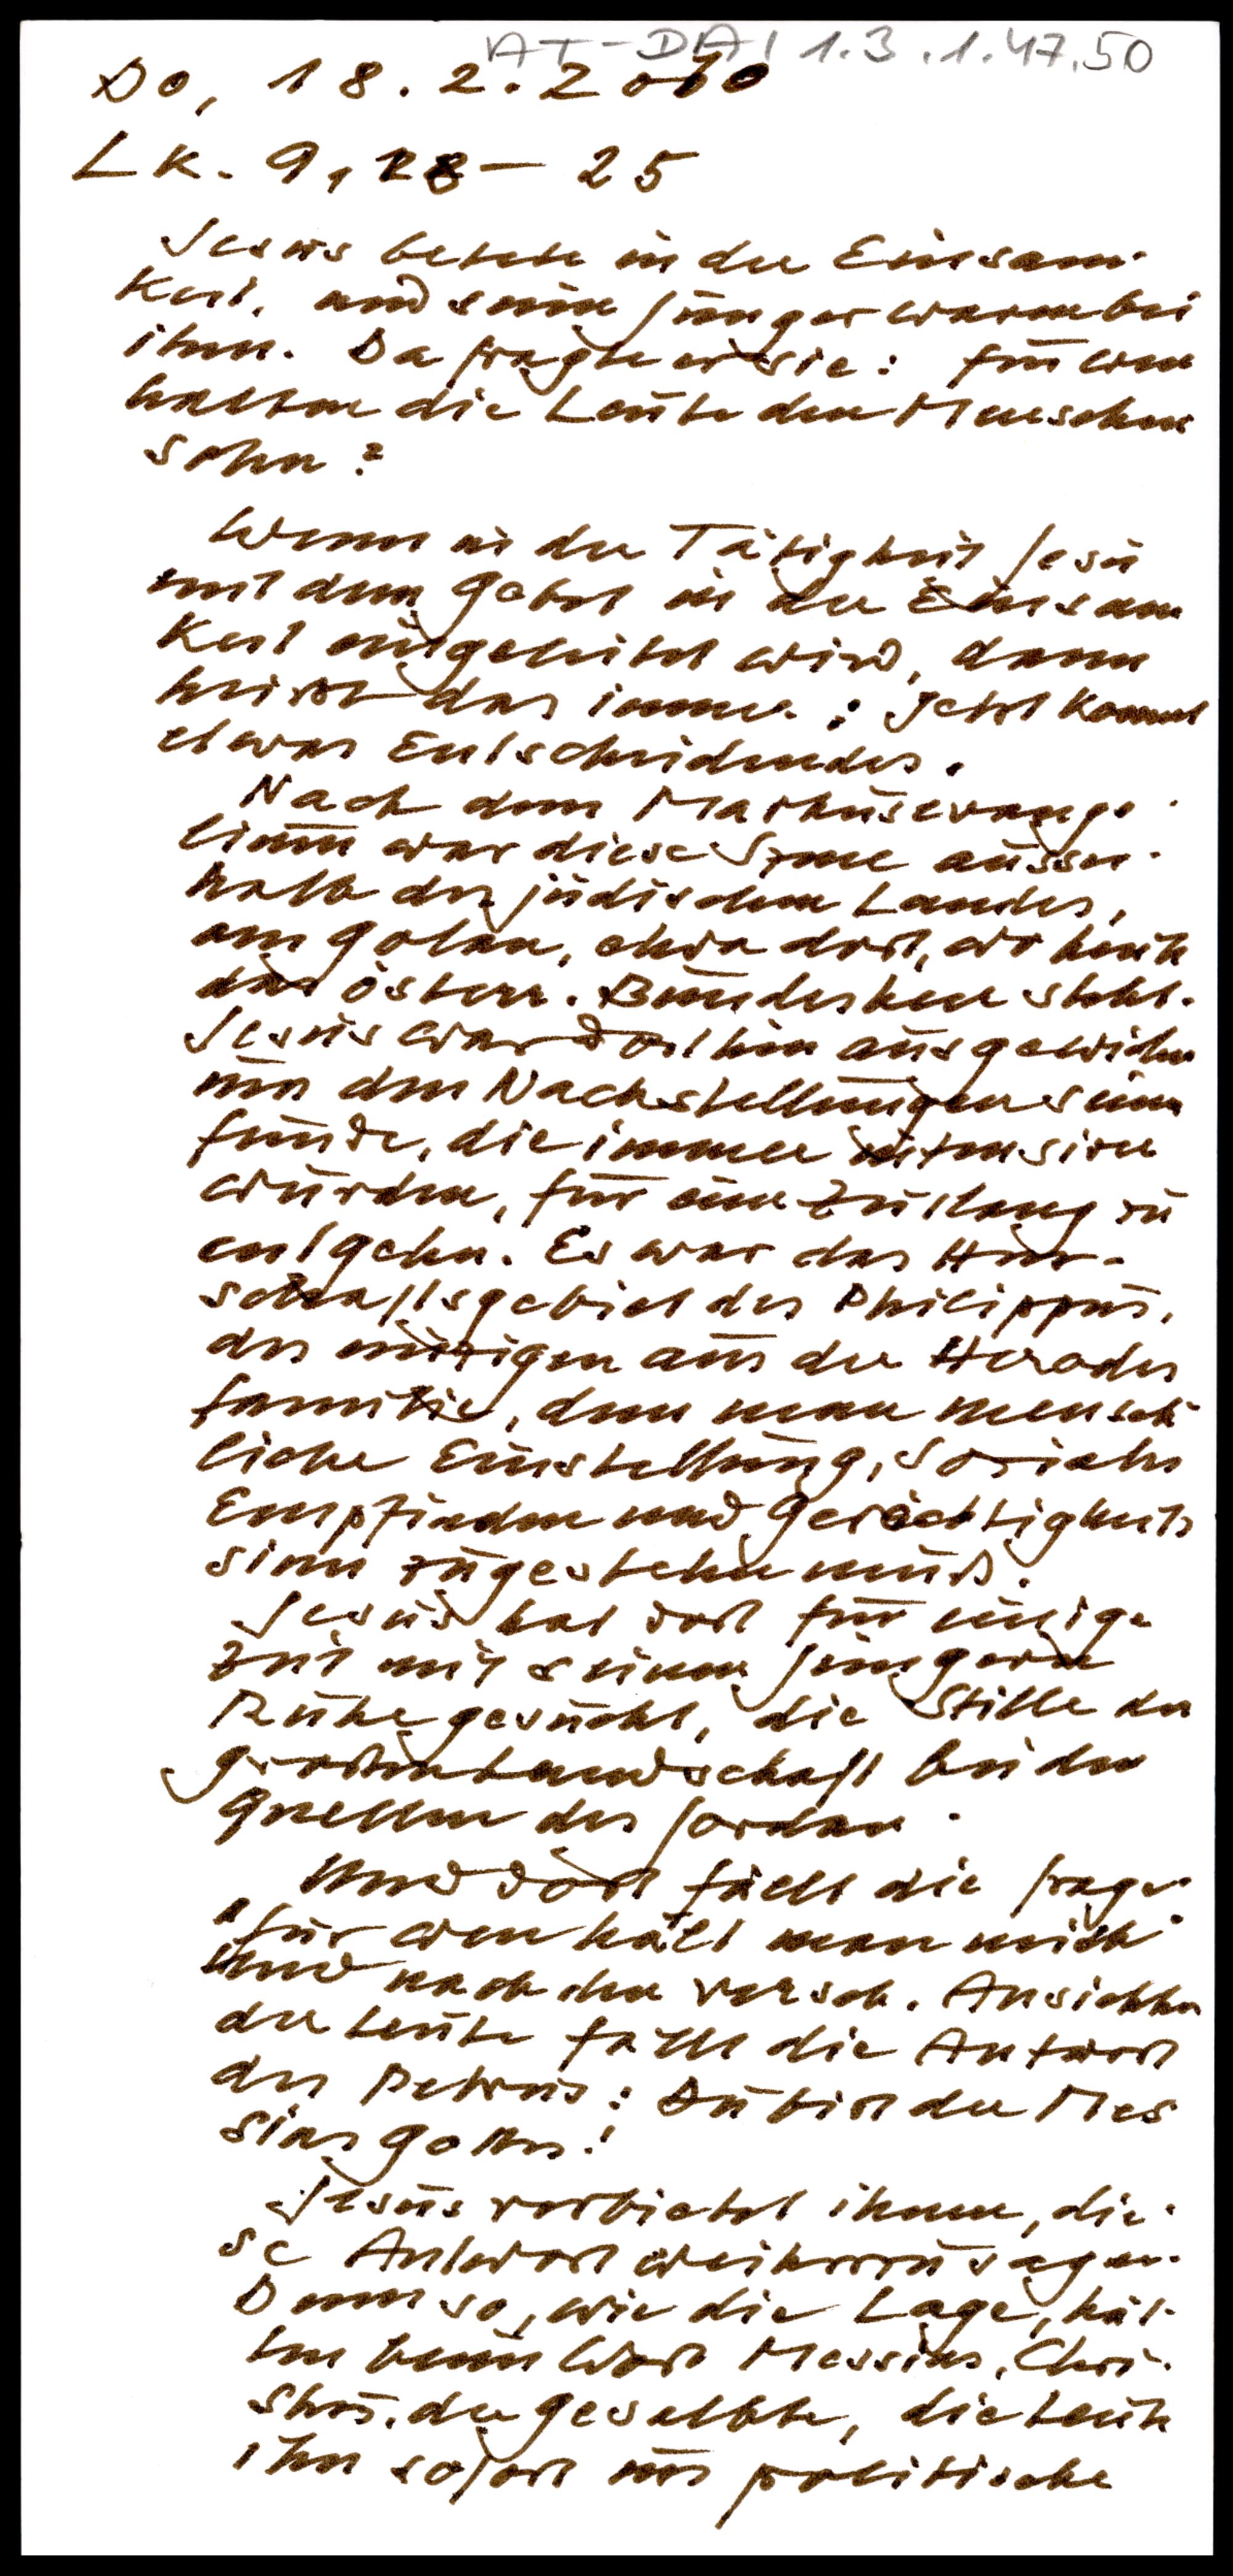 AT-DAI 1.3.1.47.50
Do, 18.2.2010
Lk. 9,18-25
Jesus betete in der Einsam-
keit. und seine Jünger waren bei
ihm. Da fragte er sie: für wen
halten die Leute den Menschen
sohn?
Wenn in der Tätigkeit Jesu
mit dem Gebet in der Einsam
keit eingeleitet wird, dann
heisst das immer: Jetzt kommt
etwas Entscheidendes.
Nach dem Markusevange-
lium war diese Szene ausser-
halb des jüdischen Landes,
am Golan, etwa dort, wo heute
das österr. Bundesheer steht.
Jesus war dorthin ausgewichen
um den Nachstellungen seiner
Feinde, die immer intensiver
wurden, für eine Zeitlang zu
entgehn. Es war das Herr-
schaftsgebiet des Philippus,
des einzigen aus der Herodes
familie, dem man mensch-
liche Einstellung, Soziales
Empfinden und Gerechtigkeits
sinn zugestehn muß.
Jesus hat dort für einige
Zeit mit seinen Jüngern
Ruhe gesucht, die Stille der
großen Landschaft bei den
Quellen des Jordan.
Und dort fällt die Frage:
"für wen hält man mich"
Und nach den versch. Ansichten
der Leute fällt die Antwort
des Petrus: Du bist der Mes
sias Gottes!
Jesus verbietet ihnen, die-
se Antwort weiterzusagen.
Denn so, wie die Lage, hät-
ten beim Wort Messias, Chri-
stus, der Gesalbte, die Leute
ihn sofort ins politische